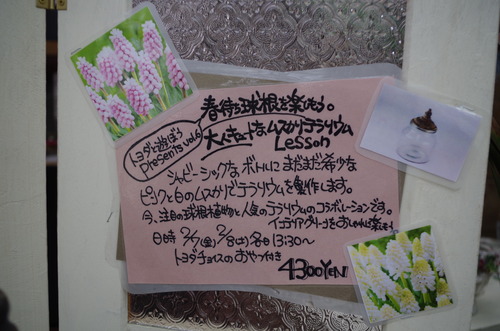 春待ち球根を楽しもう。
トヨダと遊ぼう
Presents vol.6
大人キュートなムスカリテラリウム
Lesson
シャビーシックな ボトルに まだまだ希少な
ピンクと白のムスカリでテラリウムを製作します。
今、注目の球根植物と人気のテラリウムのコラボレーションです。
インテリアグリーンをおしゃれに楽もう
日時 2/7(金) 2/8(土) 各日 13:30〜
トヨダチョイスのおやつ付き
4300YEN